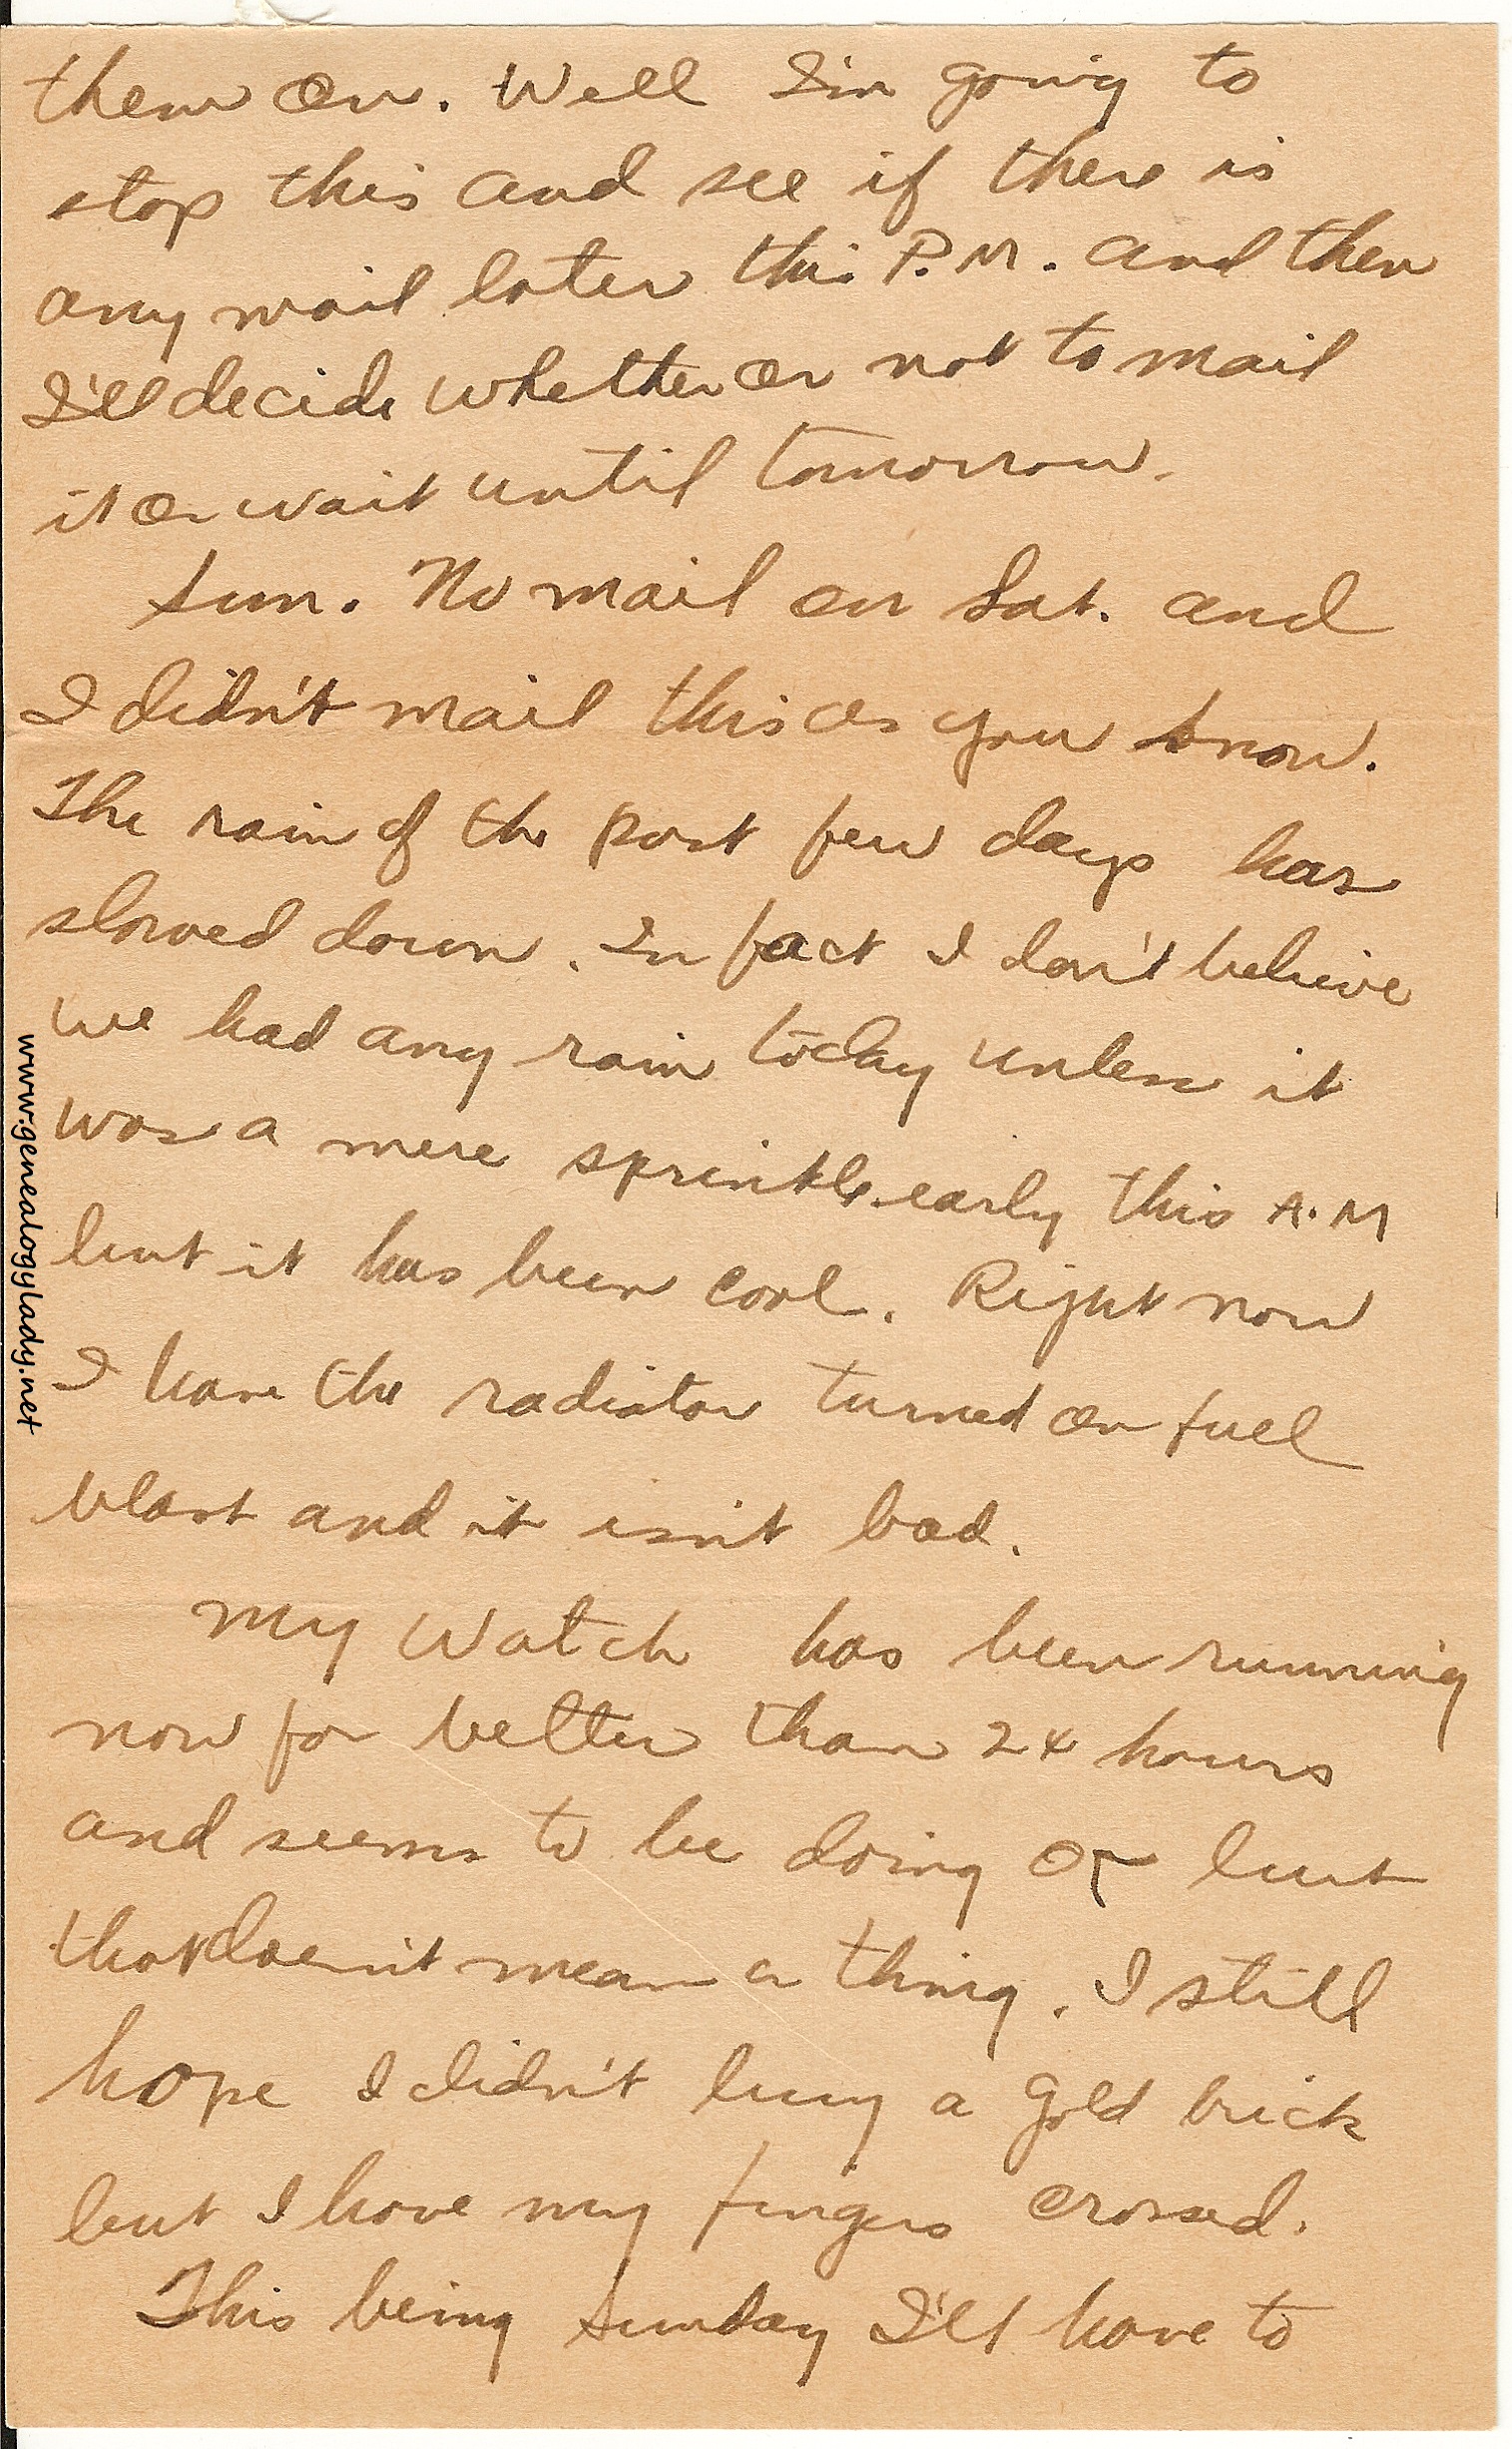 them on. Well I'm going to
stop this and see if there is
any mail later this P.M. and then
I'll decide whether or not to mail
it or wait until tomorrow.
Sun. No mail on Sat. and
I didn't mail this as you know.
The rain of the past few days has
slowed down. In fact I don't believe
we had any rain today unless it
was a mere sprinkle early this A.M
but it has been cool. Right now
I have the radiator turned on full
blast and it isn't bad.
My watch has been running
now for better than 24 hours
and seems to be doing OK but
that doesn't mean a thing. I still
hope I didn't buy a gold brick
but I have my fingers crossed.
This being Sunday I'll have to
www.genealogylady.net